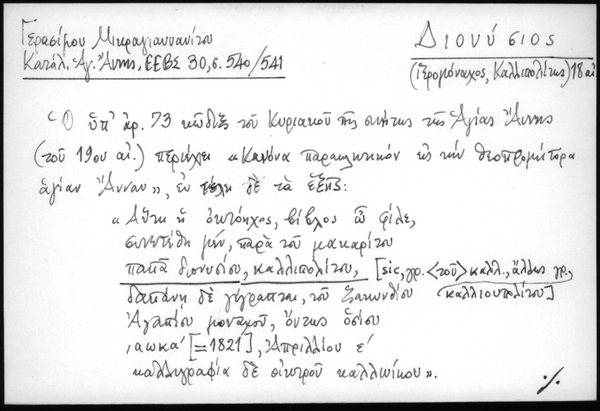 Γερασίμου Μικραγιαννανίτου
Κατάλ. Ἁγ. Ἄννης, ΕΕΒΣ 30, σ. 540/541
Διονύσιος
(ἱερομόναχος, Καλλιπολίτης) 18 αἰ.
Ὁ ὑπ' ἀρ. 73 κῶδιξ τοῦ Κυριακοῦ τῆς σκήτης τῆς Ἁγίας Ἄννης
(τοῦ 19ου αἰ.) περιέχει «Κανόνα παρακλητικόν εἰς τὴν θεοπρομήτορα
ἁγίαν Ἄνναν», ἐν τέλει δὲ τὰ ἑξῆς:
«Αὕτη ἡ ὀκτώηχος, βίβλος ὦ φίλε,
συνετέθη μέν, παρὰ τοῦ μακαρίτου
παπᾶ διονυσίου, καλλιπολίτου, [sic, γρ. <τοῦ> καλλ., ἄλλως γρ.
καλλιουπολίτου]
δαπάνη δὲ γέγραπται, τοῦ ζακυνθίου
Ἀγαπίου μοναχοῦ, ὄντως ὁσίου
͵αωκα' [=1821], Ἀπριλλίου ε'
καλλιγραφία δὲ οἰκτροῦ καλλινίκου».
./.